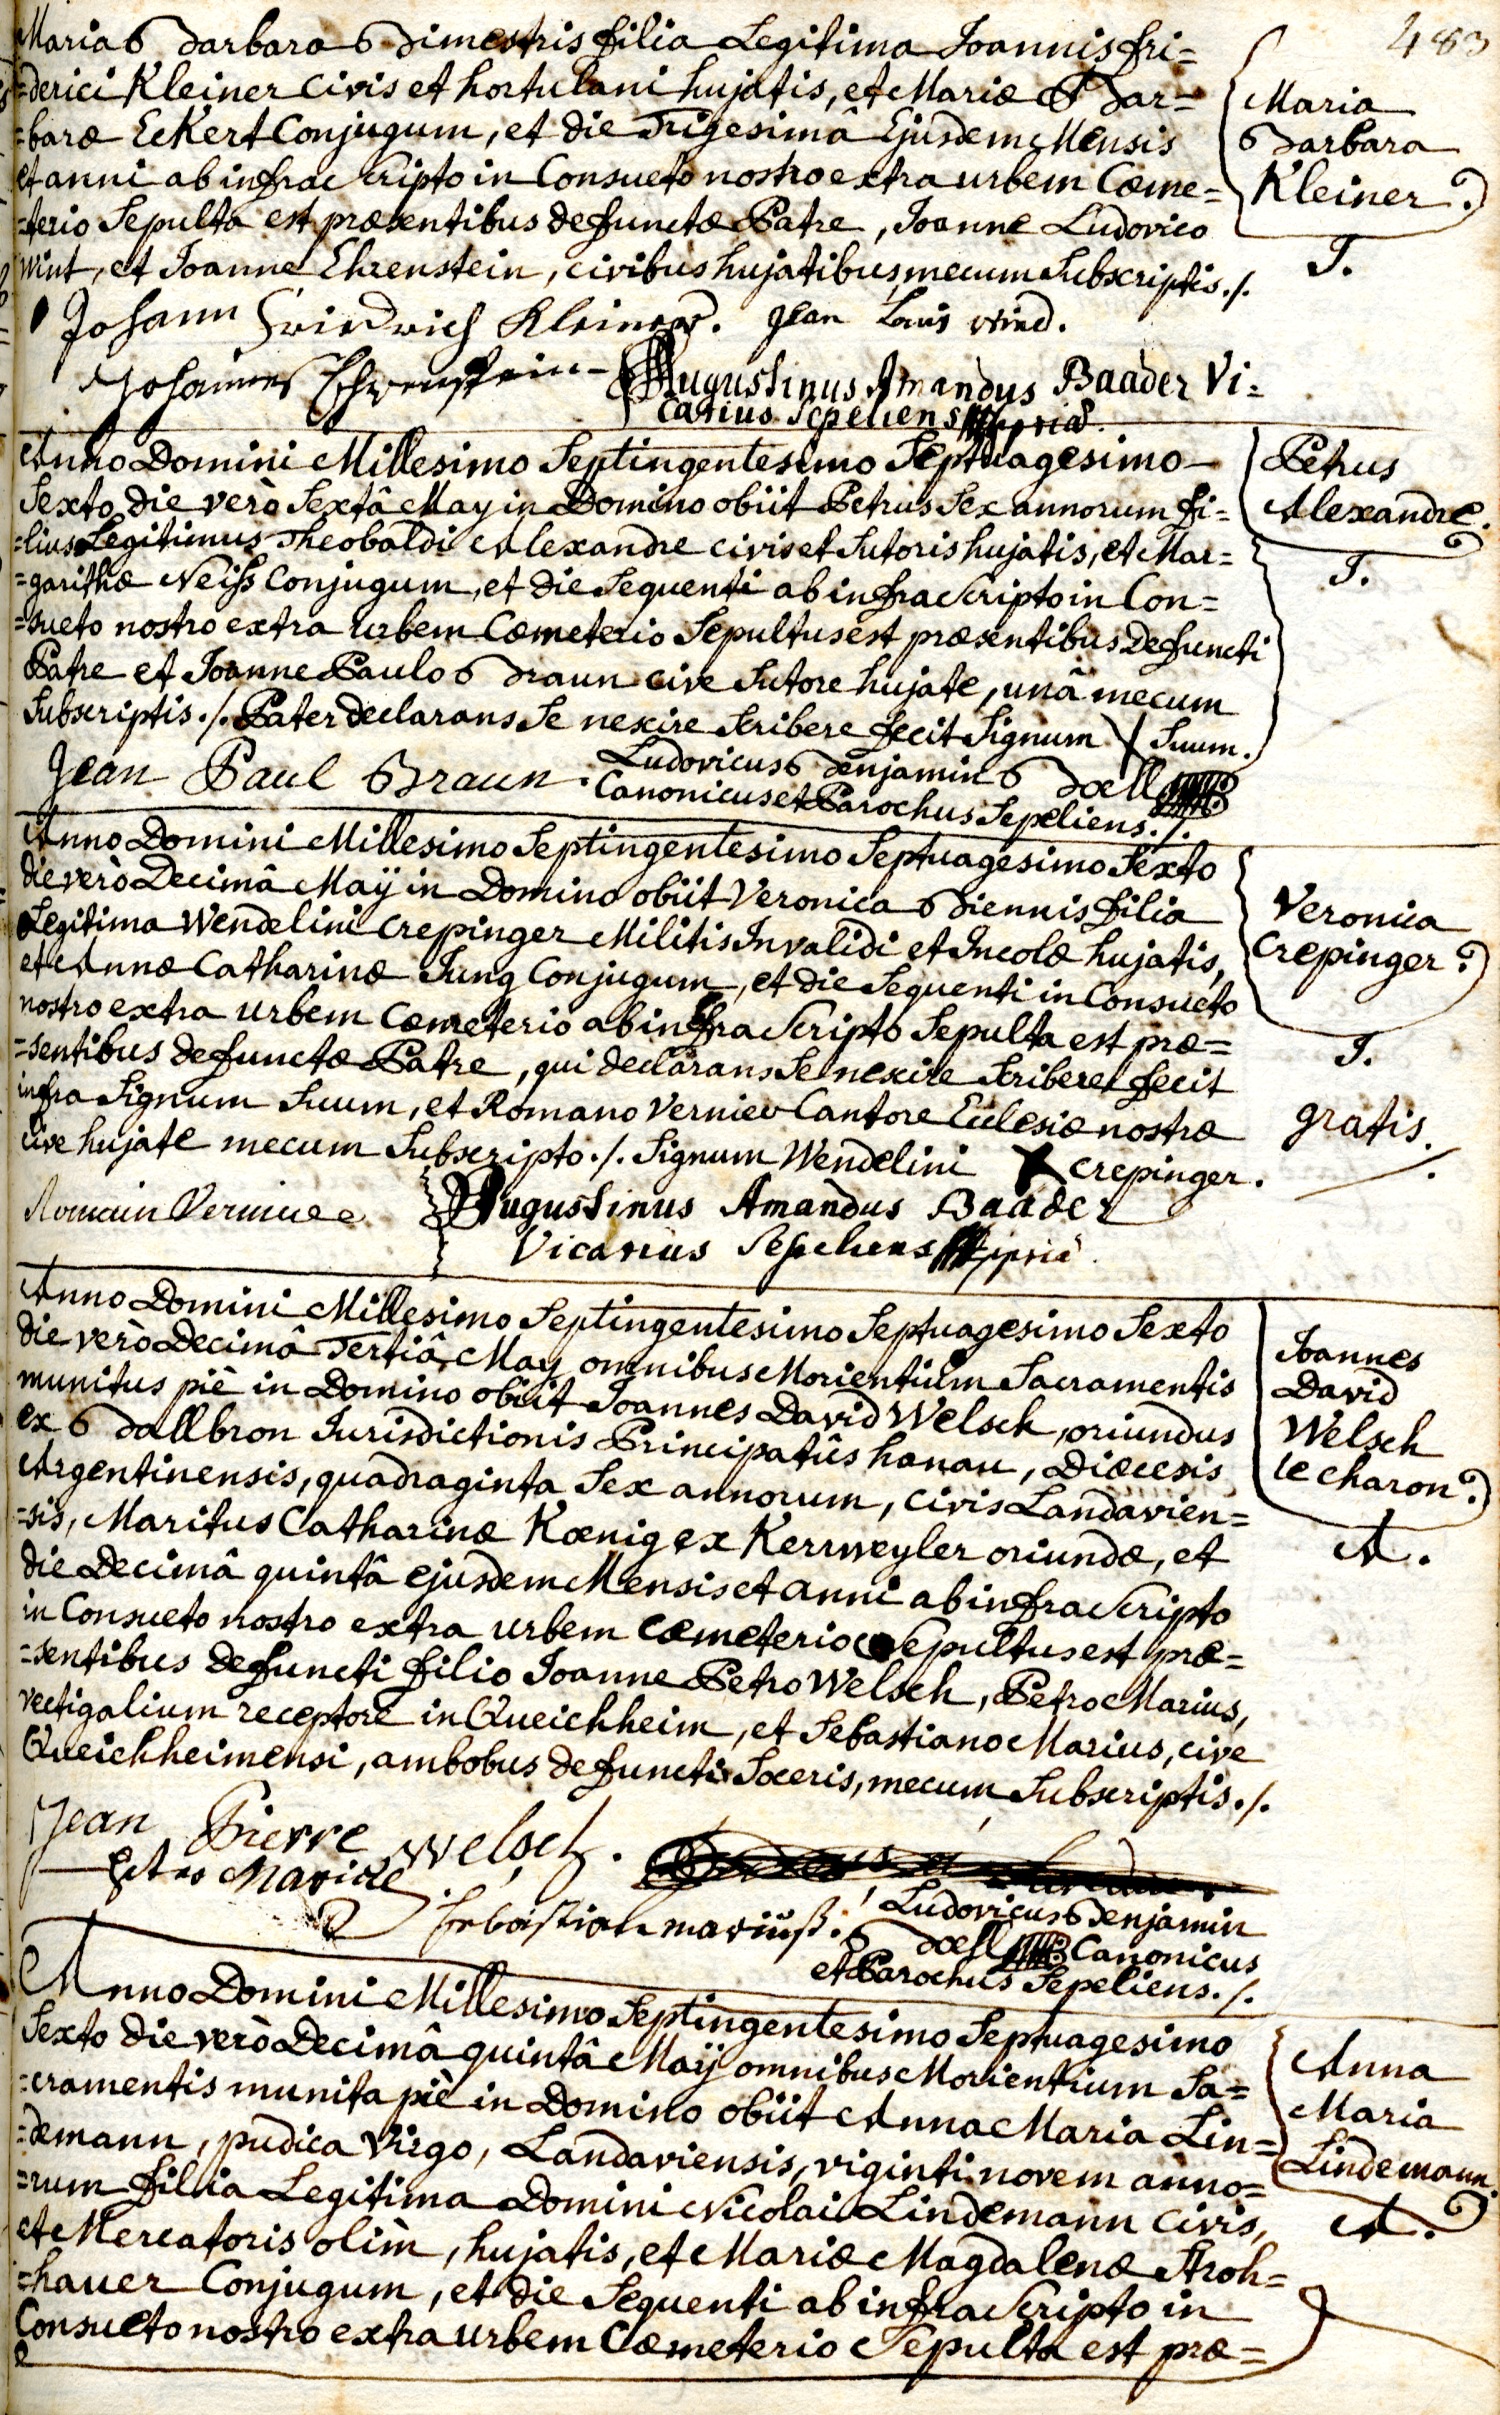 483
Maria Barbara Bimestris filia Legitima Joannis fri=
=derici Kleiner civis et hortulani hujatis, et Mariæ Bar=
=baræ Eckert Conjugum, et die Trigesimâ Ejusdem Mensis
et anni ab infrascripto in Consueto nostro extra urbem Cœme=
=terio Sepulta est præsentibus defunctæ Patre, Joanne Ludovico
Wint, et Joanne Ehrenstein, civibus hujatibus mecum Subscriptis./.
Maria
Barbara
Kleiner.
J.
Johann Friedrich Kleiner. Jean Louis Wind.
Johannes Ehrenstein
Augustinus Amandus Baader Vi=
carius Sepeliens mppriâ.
Anno Domini Millesimo Septingentesimo Septuagesimo
Sexto, die verò Sextâ May in Domino obiit Petrus Sex annorum fi=
=lius Legitimus Theobaldi Alexandre civis et Sutoris hujatis, et Mar=
=garithæ Neiss Conjugum, et die Sequenti ab infrascripto in Con=
=sueto nostro extra urbem Cœmeterio Sepultus est præsentibus defuncti
Patre et Joanne Paulo Braun cive Sutore hujate, unâ mecum
Subscriptis./. Pater declarans Se nescire Scribere fecit Signum Suum.
Petrus
Alexandre.
J.
Jean Paul Braun.
Ludovicus Benjamin Boell
Canonicus et Parochus Sepeliens./.
Anno Domini Millesimo Septingentesimo Septuagesimo Sexto
die verò Decimâ Maÿ in Domino obiit Veronica Biennis filia
Legitima Wendelini Crepinger Militis Invalidi et Incolæ hujatis,
et Annæ Catharinæ Jung Conjugum, et die Sequenti in Consueto
nostro extra urbem Cœmeterio ab infrascripto Sepulta est præ=
=sentibus defunctæ Patre, qui declarans Se nescire Scribere fecit
infra Signum Suum, et Romano Vernier Cantore Ecclesiæ nostræ
cive hujate mecum Subscripto./. Signum Wendelini X Crepinger.
Veronica
Crepinger.
J.
gratis.
Romain Vernier
Augustinus Amandus Baader
Vicarius Sepeliens mppriâ.
Anno Domini Millesimo Septingentesimo Septuagesimo Sexto
die verò Decimâ Tertiâ May omnibus Morientium Sacramentis
munitus piè in Domino obiit Joannes David Welsch, oriundus
ex Ballbron Jurisdictionis Principatûs hanau, Diœcesis
Argentinensis, quadraginta Sex annorum, civis Landavien=
=sis, Maritus Catharinæ Kœnig ex Kerrweyler oriundæ, et
die Decimâ quintâ ejusdem Mensis et anni ab infrascripto
in Consueto nostro extra urbem Cœmeterio Sepultus est præ=
=sentibus defuncti filio Joanne Petro Welsch, Petro Marius,
vectigalium receptore in Queichheim, et Sebastiano Marius, cive
Queichheimensi, ambobus defuncti Soceris, mecum Subscriptis./.
Joannes
David
Welsch
le charon.
A.
Jean Pierre Welsch.
Petrus Marius
Sebastian mariuß.
Ludovicus Benjamin
Boell Canonicus
et Parochus Sepeliens./.
Anno Domini Millesimo Septingentesimo Septuagesimo
Sexto die verò Decimâ quintâ Maÿ omnibus Morientium Sa=
=cramentis munita piè in Domino obiit Anna Maria Lin=
=demann, pudica Virgo, Landaviensis, viginti novem anno=
=rum filia Legitima Domini Nicolai Lindemann civis,
et Mercatoris olim, hujatis, et Mariæ Magdalenæ Stroh=
=hauer Conjugum, et die Sequenti ab infrascripto in
Consueto nostro extra urbem Cœmeterio Sepulta est præ=
Anna
Maria
Lindemann.
A.